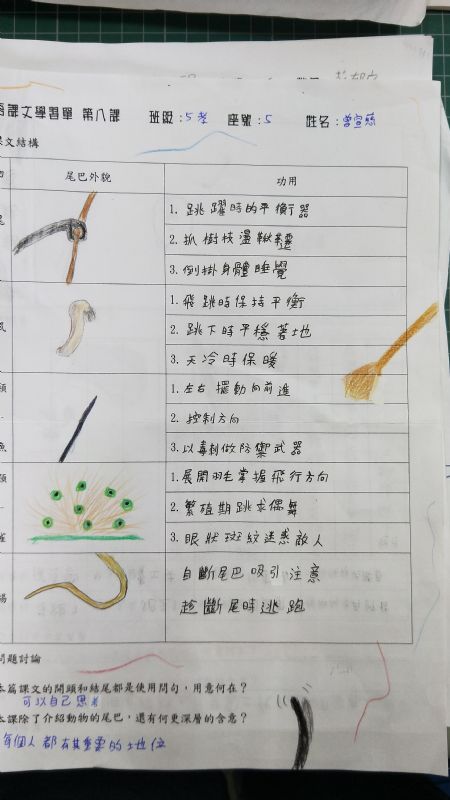 課文學習單 第八課 班級：5孝 座號：5 姓名：曾宣慈
課文結構
尾巴外貌 功用
1. 跳躍時的平衡器
2. 抓樹枝盪鞦韆
3. 倒掛身體睡覺
1. 飛跳時保持平衡
2. 跳下時平穩著地
3. 天冷時保暖
1. 左右擺動向前進
2. 控制方向
魚
3. 以毒刺做防禦武器
1. 展開羽毛掌握飛行方向
2. 繁殖期跳求偶舞
雀
3. 眼狀斑紋迷惑敵人
自斷尾巴吸引注意
趁斷尾時逃跑
問題討論
本篇課文的開頭和結尾都是使用問句，用意何在？
可以自己思考
本課除了介紹動物的尾巴，還有何更深層的含意？
每個人都有其重要的地位